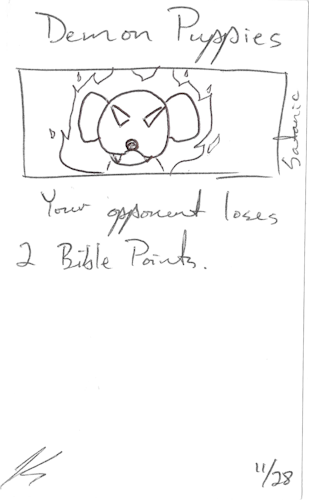 Demon Puppies
Satanic
Your opponent loses
2 Bible Points.
11/28